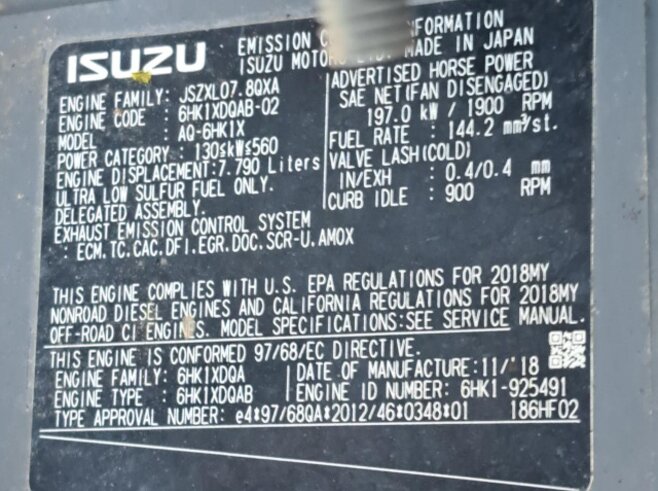 ISUZU
EMISSION C NFORMATION
ISUZU MOTORS LTD. MADE IN JAPAN
ENGINE FAMILY: JSZXL07.8QXA
ENGINE CODE : 6HK1XDQAB-02
MODEL : AQ-6HK1X
POWER CATEGORY : 130≤kW≤560
ENGINE DISPLACEMENT:7.790 Liters
ULTRA LOW SULFUR FUEL ONLY.
DELEGATED ASSEMBLY.
EXHAUST EMISSION CONTROL SYSTEM
: ECM.TC.CAC.DFI.EGR.DOC.SCR-U.AMOX
ADVERTISED HORSE POWER
SAE NET(FAN DISENGAGED)
197.0 kW / 1900 RPM
FUEL RATE : 144.2 mm³/st.
VALVE LASH(COLD)
IN/EXH : 0.4/0.4 mm
CURB IDLE : 900 RPM
THIS ENGINE COMPLIES WITH U.S. EPA REGULATIONS FOR 2018MY
NONROAD DIESEL ENGINES AND CALIFORNIA REGULATIONS FOR 2018MY
OFF-ROAD CI ENGINES. MODEL SPECIFICATIONS:SEE SERVICE MANUAL.
THIS ENGINE IS CONFORMED 97/68/EC DIRECTIVE.
ENGINE FAMILY: 6HK1XDQA
ENGINE TYPE : 6HK1XDQAB
DATE OF MANUFACTURE:11/'18
ENGINE ID NUMBER: 6HK1-925491
TYPE APPROVAL NUMBER: e4*97/68QA*2012/46*0348*01 186HF02